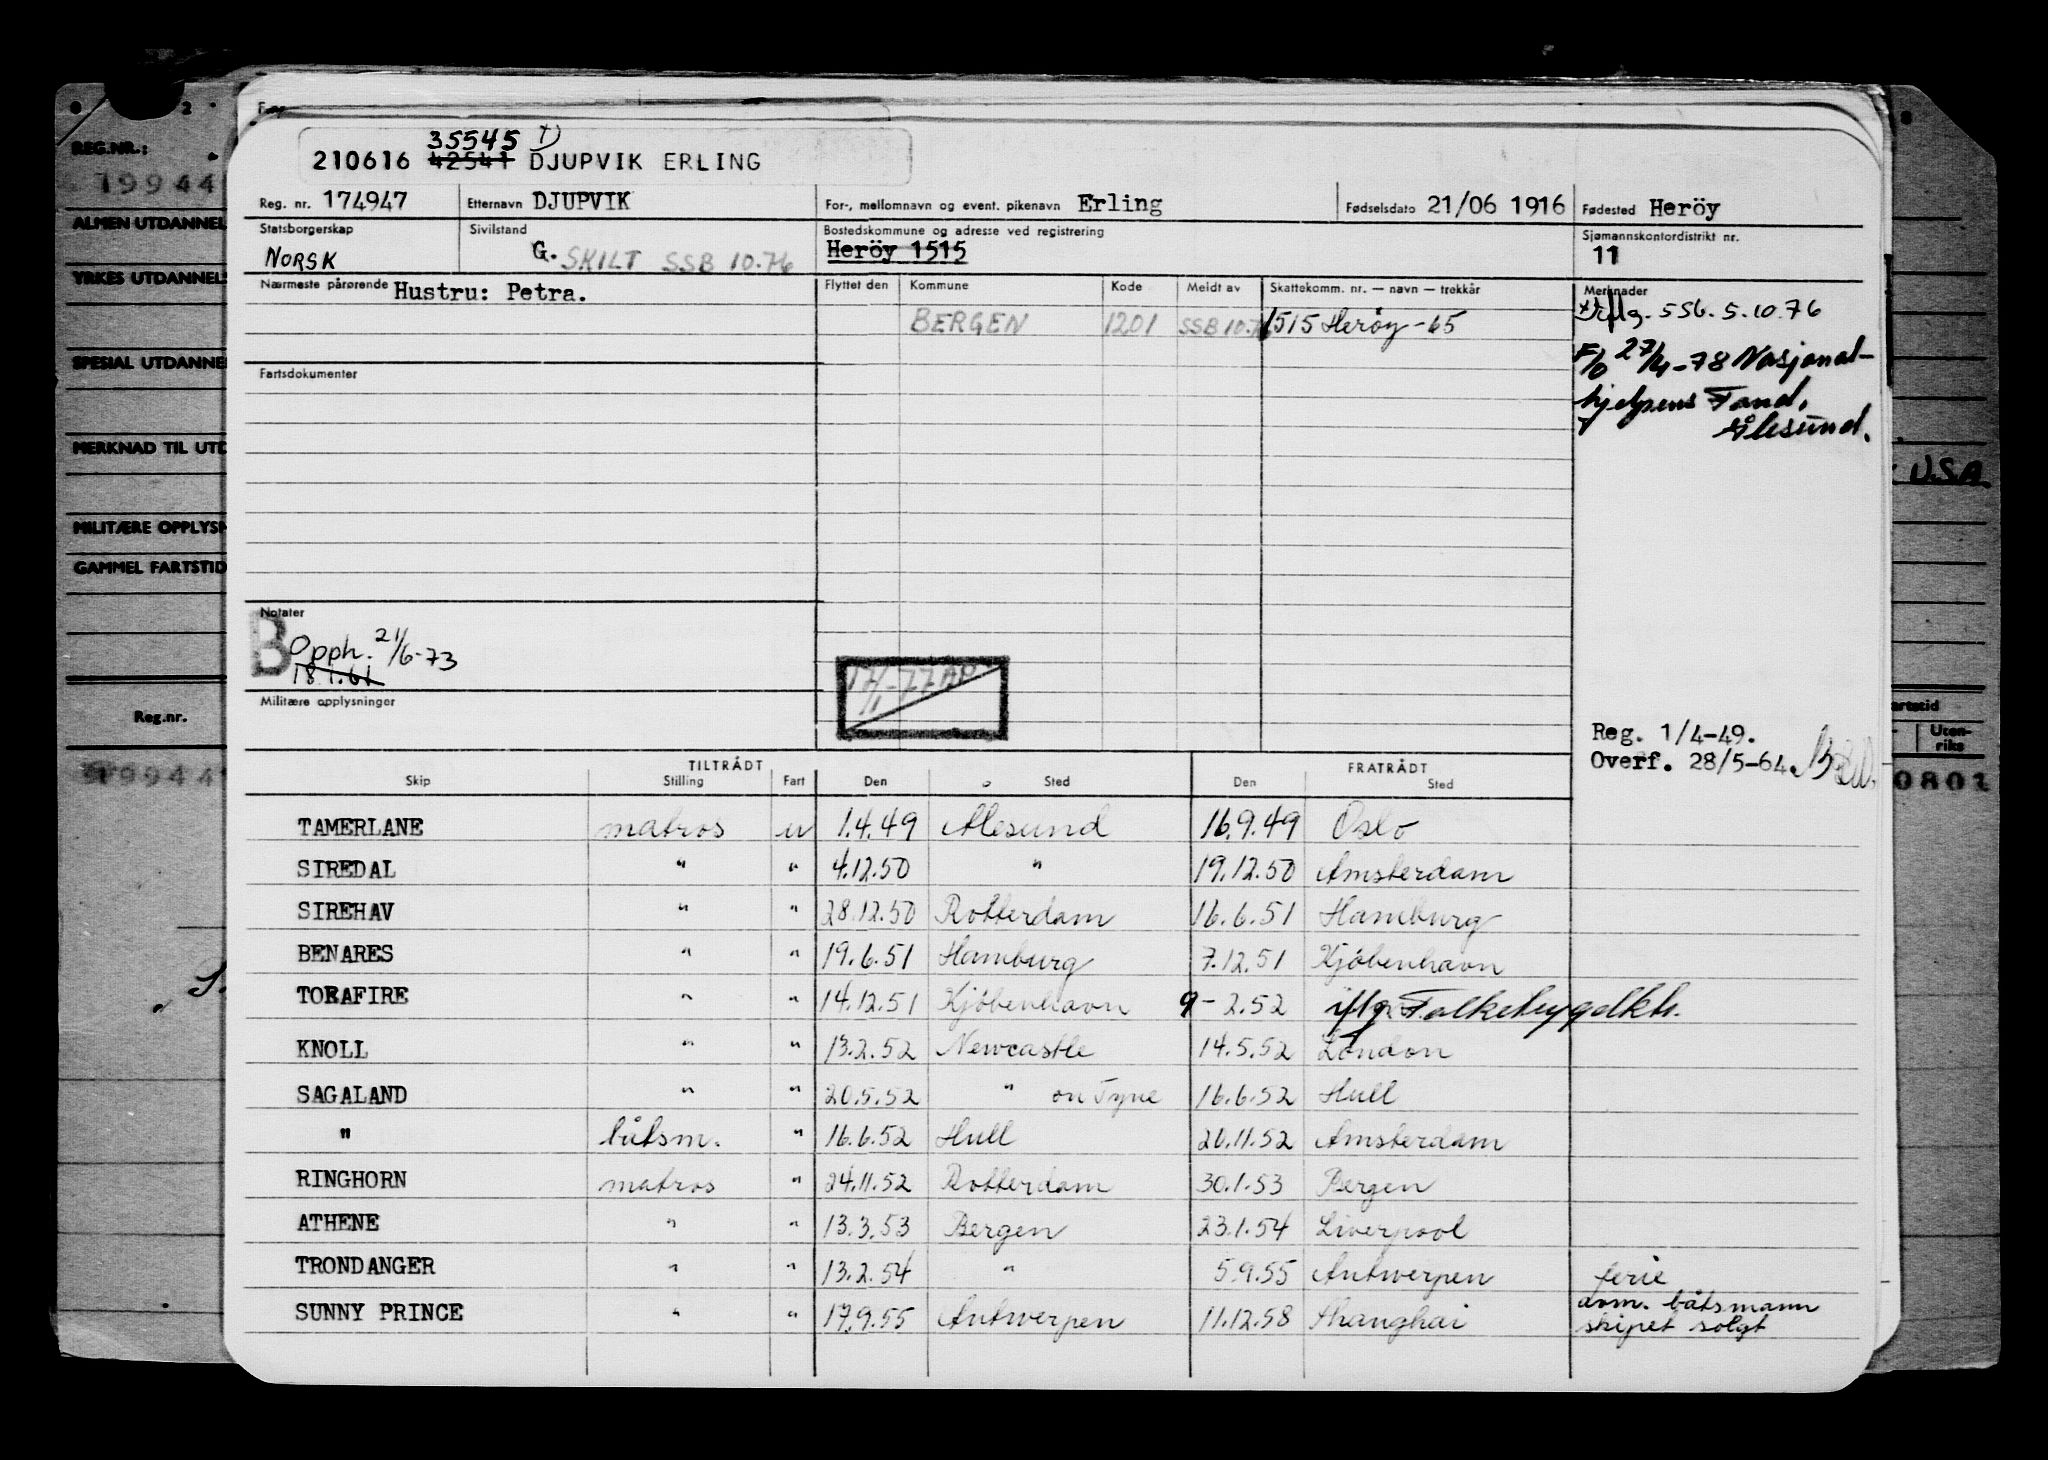 35545
210616 42541 DJUPVIK ERLING
REG.NR.:
19944
Reg. nr. 174947 Etternavn DJUPVIK For-, mellomnavn og event. pikenavn Erling Fødselsdato 21/06 1916 Fødested Heröy
ALMEN UTDANNEL
Statsborgerskap Sivilstand Bostedskommune og adresse ved registrering Sjømannskontordistrikt nr.
NORSK G. SKILT SSB 10.76 Heröy 1515 11
YRKES UTDANNELS
Nærmeste pårørende Hustru: Petra. Flyttet den Kommune Kode Meldt av Skattekomm. nr. — navn — trekkår Merknader
BERGEN 1201 SSB 10.76 1515 Herøy -65 SSB. 5.10.76
F/b 27/4-78 Nasjonal-
hjelpens Fond,
Ålesund.
SPESIAL UTDANNE
Fartsdokumenter
MERKNAD TIL UTD
U.S.A.
MILITÆRE OPPLYSN
GAMMEL FARTSTID
Notater
B Opph. 21/6-73
18.1.61
17/1-77 AP
Militære opplysninger
Reg.nr.
artstid
Uten-
riks
Reg. 1/4-49.
Overf. 28/5-64.
19944
0801
TILTRÅDT FRATRÅDT
Skip Stilling Fart Den Sted Den Sted
TAMERLANE matros u 1.4.49 Ålesund 16.9.49 Oslo
SIREDAL " " 4.12.50 " 19.12.50 Amsterdam
SIREHAV " " 28.12.50 Rotterdam 16.6.51 Hamburg
BENARES " " 19.6.51 Hamburg 7.12.51 Kjöbenhavn
TORAFIRE " " 14.12.51 Kjöbenhavn 9- 2.52 iflg. Folketrygdkt.
KNOLL " " 13.2.52 Newcastle 14.5.52 London
SAGALAND " " 20.5.52 " on Tyne 16.6.52 Hull
" båtsm. " 16.6.52 Hull 20.11.52 Amsterdam
RINGHORN matros " 24.11.52 Rotterdam 30.1.53 Bergen
ATHENE " " 13.3.53 Bergen 23.1.54 Liverpool
TRONDANGER " " 13.2.54 " 5.9.55 Antwerpen ferie
SUNNY PRINCE " " 17.9.55 Antwerpen 11.12.58 Shanghai avm. båtsmann
skipet solgt